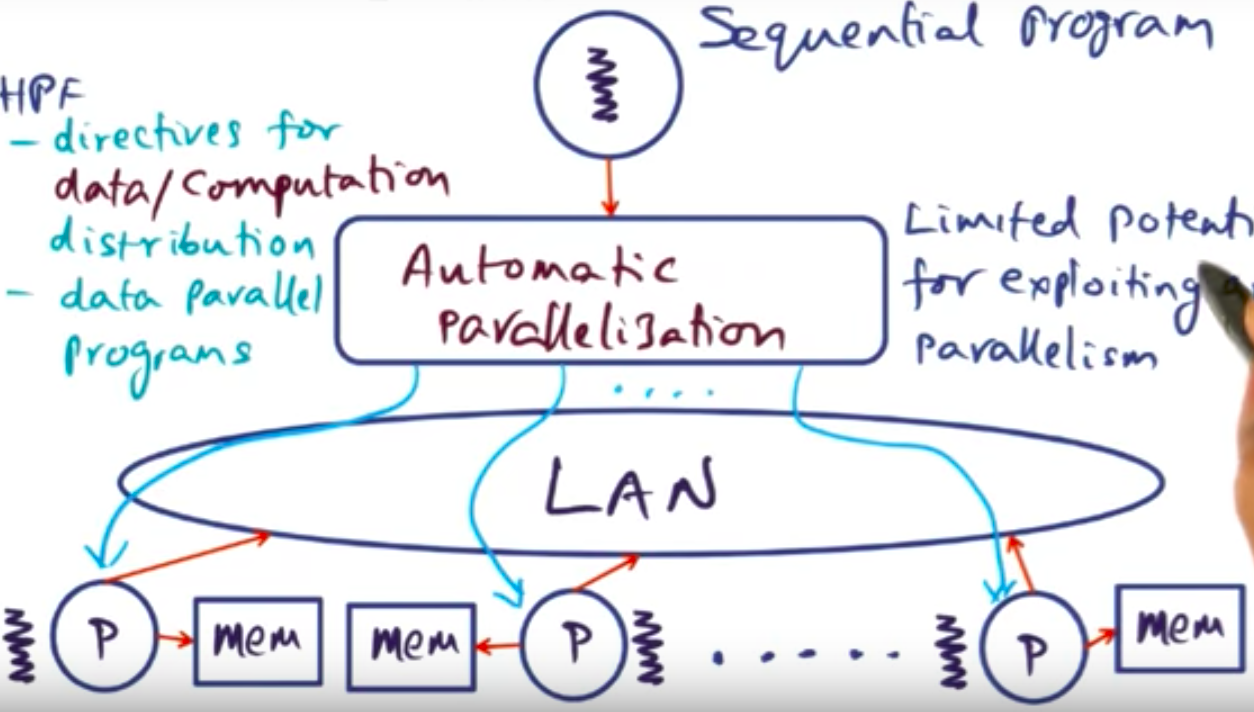 Sequential Program
HPF
- directives for
data/Computation
distribution
- data parallel
programs
Automatic
parallelization
Limited
for exploiting
parallelism
LAN
P
mem
mem
P
P
mem